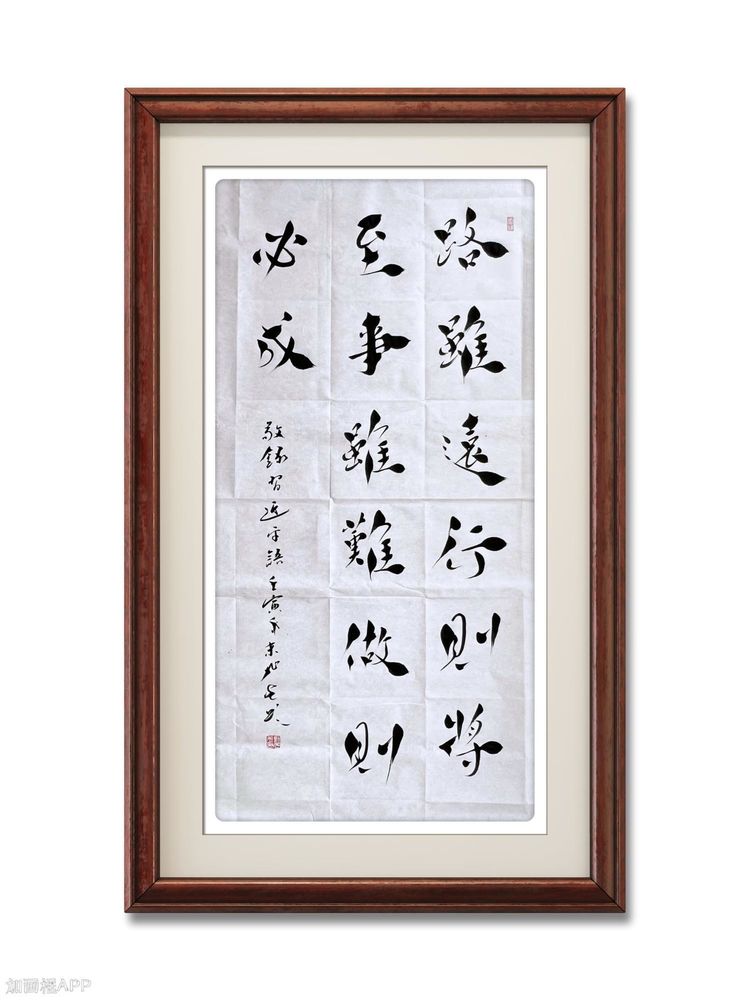 路雖遠行則將
至事雖難做則
必成
敬錄習近平語壬寅年末
加画框APP